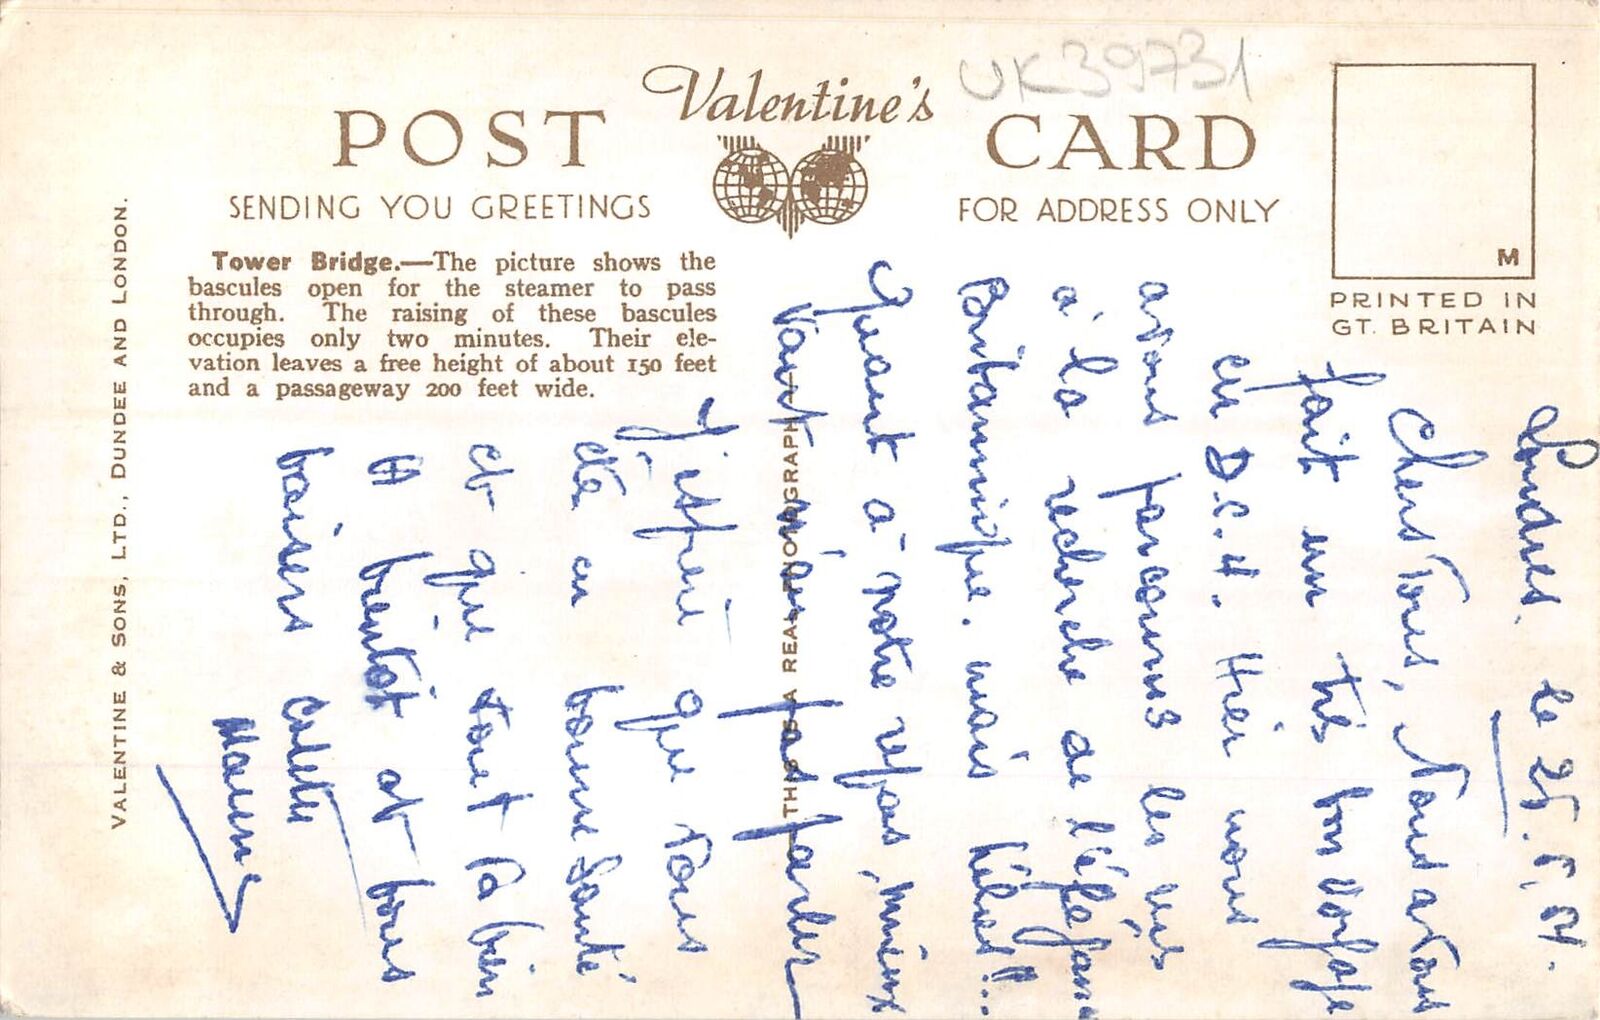 UK39731
POST Valentine's CARD
SENDING YOU GREETINGS
FOR ADDRESS ONLY
M
PRINTED IN
GT. BRITAIN
Tower Bridge.—The picture shows the
bascules open for the steamer to pass
through. The raising of these bascules
occupies only two minutes. Their ele-
vation leaves a free height of about 150 feet
and a passageway 200 feet wide.
VALENTINE & SONS, LTD., DUNDEE AND LONDON.
THIS IS A REAL PHOTOGRAPH
Londres. le 25.5.54.
Chers Tous, Nous avons
fait un très bon voyage
en D.C.4. Hier nous
avons parcourus les rues
à la recherche de l'élégance
Britannique. mais hélas!!..
Quant à notre repas, mieux
Vaut n'en pas parler
J'espère que vous
été en bonne Santé
et que tout va bien
A bientôt et bons
baisers